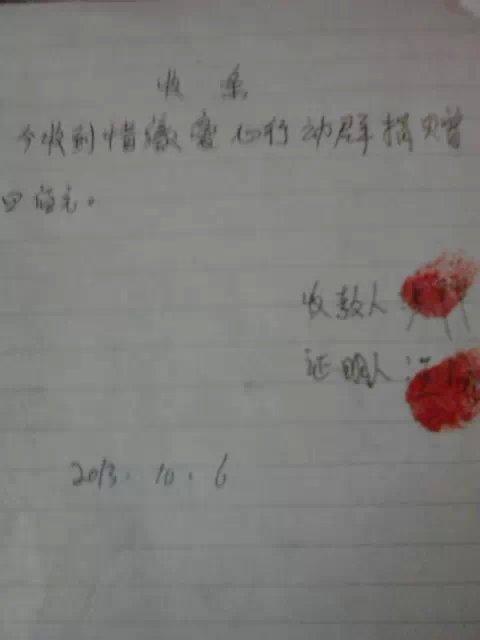 收条
今收到情缴察心行动群捐赠
四佰元。
收款人
证明人:
2013.10.6